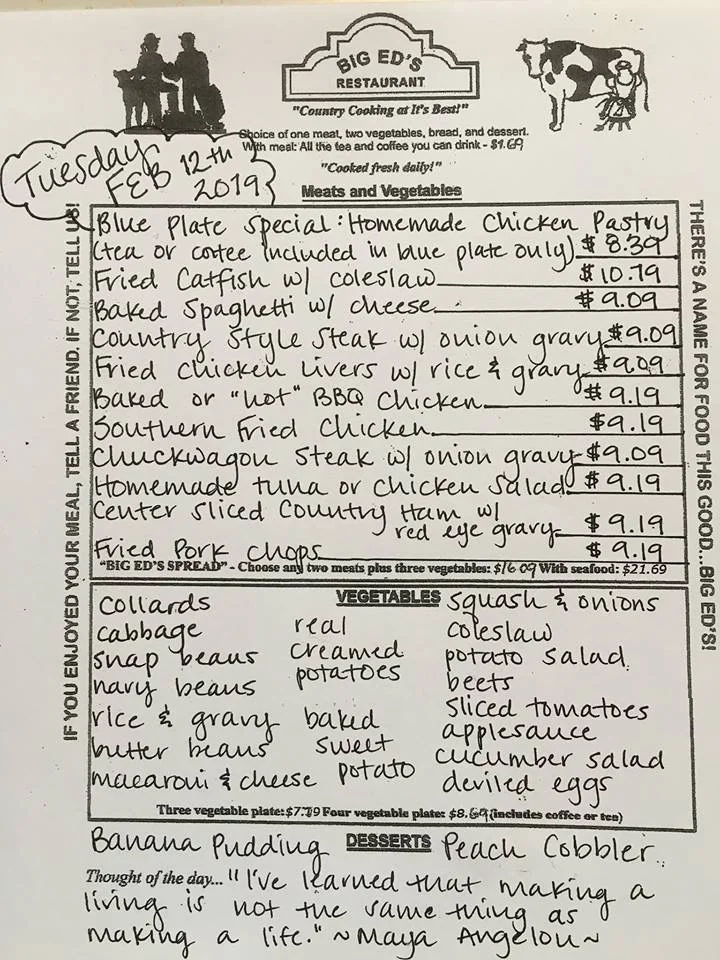 BIG ED'S
RESTAURANT
"Country Cooking at It's Best!"
Choice of one meat, two vegetables, bread, and dessert.
With meal: All the tea and coffee you can drink - $1.69
"Cooked fresh daily!"
Tuesday
FEB 12th
2019
Meats and Vegetables
IF YOU ENJOYED YOUR MEAL, TELL A FRIEND. IF NOT, TELL US!
THERE'S A NAME FOR FOOD THIS GOOD...BIG ED'S!
Blue Plate Special: Homemade Chicken Pastry
(tea or coffee included in blue plate only) $ 8.39
Fried Catfish w/ coleslaw $10.79
Baked Spaghetti w/ cheese $9.09
Country Style Steak w/ onion gravy $9.09
Fried Chicken Livers w/ rice & gravy $9.09
Baked or "hot" BBQ Chicken $9.19
Southern Fried Chicken $9.19
Chuckwagon Steak w/ onion gravy $9.09
Homemade tuna or chicken Salad $9.19
Center Sliced Country Ham w/
red eye gravy $9.19
Fried Pork Chops $9.19
"BIG ED'S SPREAD" - Choose any two meats plus three vegetables: $16.09 With seafood: $21.69
VEGETABLES
collards
cabbage
snap beans
navy beans
rice & gravy
butter beans
macaroni & cheese
real
creamed
potatoes
baked
sweet
potato
squash & onions
coleslaw
potato salad
beets
sliced tomatoes
applesauce
cucumber salad
deviled eggs
Three vegetable plate: $7.79 Four vegetable plate: $8.69 (includes coffee or tea)
Banana Pudding DESSERTS Peach Cobbler
Thought of the day... "I've learned that making a
living is not the same thing as
making a life." ~Maya Angelou~